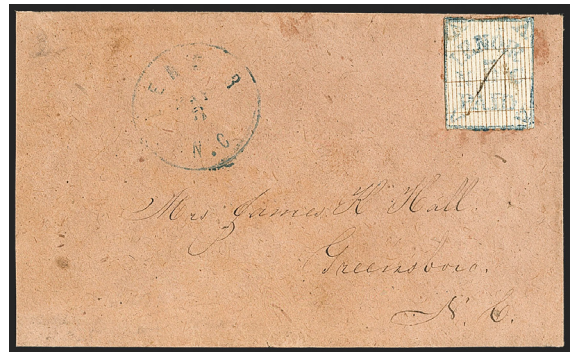 LENOIR
N.C.
PAID
Mrs James K Hall
Greensboro.
N. C.